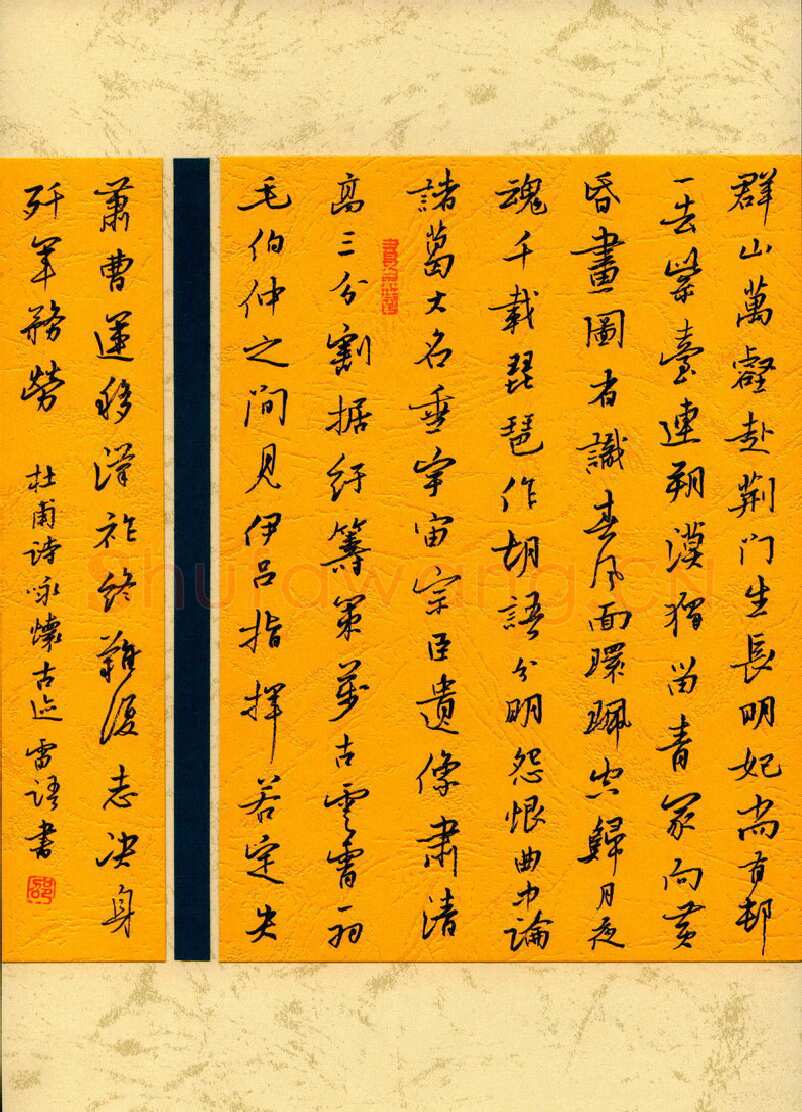 群山萬壑赴荆门生長明妃尚有邨
一去紫臺連朔漠獨留青冢向黄
昏畫圖省識春风面環珮空歸月夜
魂千載琵琶作胡語分明怨恨曲中論
諸葛大名垂宇宙宗臣遺像肅清
高三分割据紆籌策萬古雲霄一羽
毛伯仲之间見伊呂指揮若定失
蕭曹運移漢祚終難復志决身
歼軍務勞
杜甫诗咏懷古迹 雷语書
Shufawang.CN